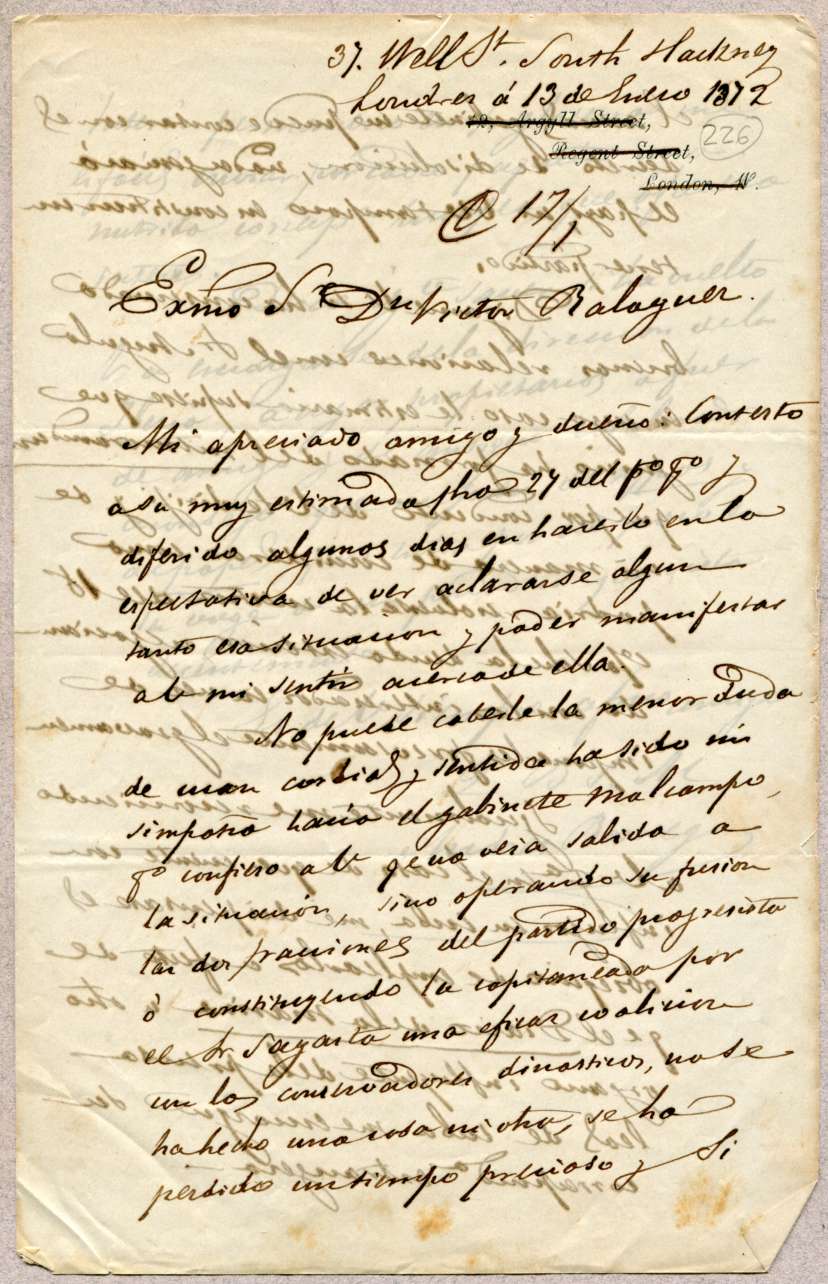 37. Well St. South Hackney
Londres á 13 de Enero 1872
12, Argyll Street,
Regent Street,
London, W.
226
17/1
Exmo Sr Dn Victor Balaguer.
Mi apreciado amigo y dueño: Contesto
a su muy estimada fha 27 del po po y
diferido algunos dias en hacerlo en la
espectativa de ver aclararse algun
tanto esa situacion y poder manifestar
a V. mi sentir acerca de ella.
No puede caberle la menor duda
de cuan cordial y sentida ha sido mi
simpatia hacia el gabinete Malcampo,
po confieso a V. qe no veia salida a
la situación, sino operando su fusion
las dos fracciones del partido progresista
ó constituyendo la capitaneada por
el Sr Sagasta una eficaz coalicion
con los conservadores dinasticos, no se
ha hecho una cosa ni otra, se ha
perdido un tiempo precioso y si